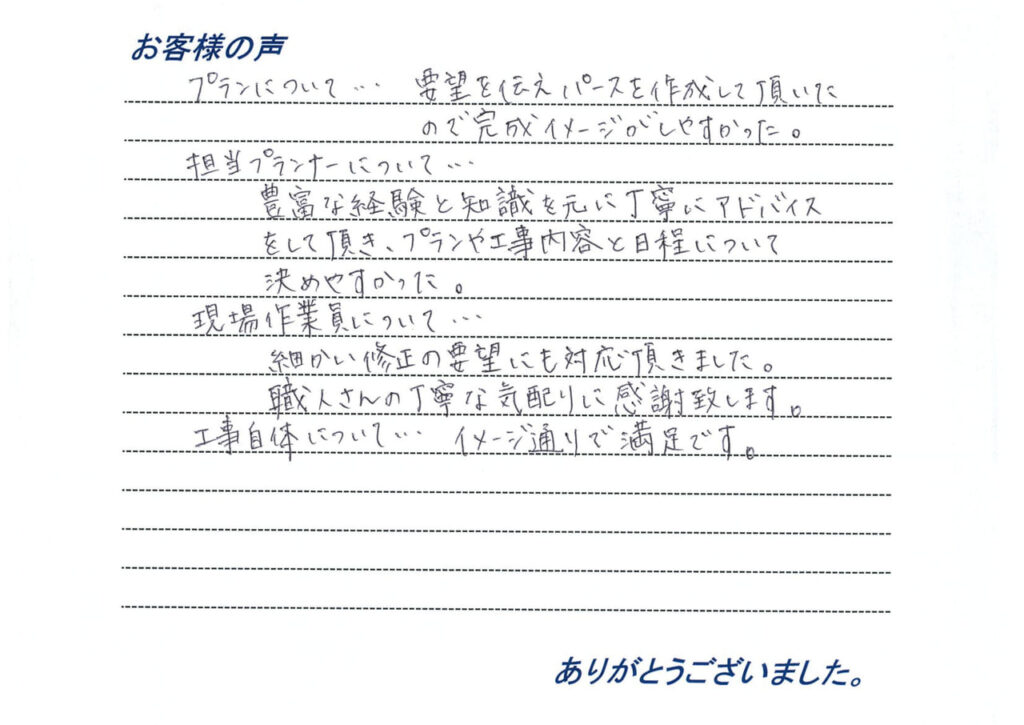 お客様の声
プランについて… 要望を伝えパースを作成して頂いた
ので完成イメージがしやすかった。
担当プランナーについて…
豊富な経験と知識を元に丁寧にアドバイス
をして頂き、プランや工事内容と日程について
決めやすかった。
現場作業員について…
細かい修正の要望にも対応頂きました。
職人さんの丁寧な気配りに感謝致します。
工事自体について… イメージ通りで満足です。
ありがとうございました。